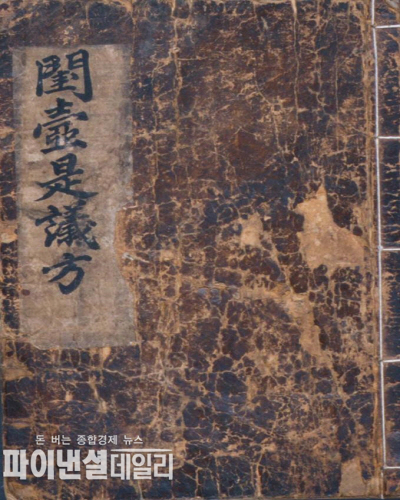 閨壼是議方
돈 버는 종합경제 뉴스
파이낸셜데일리